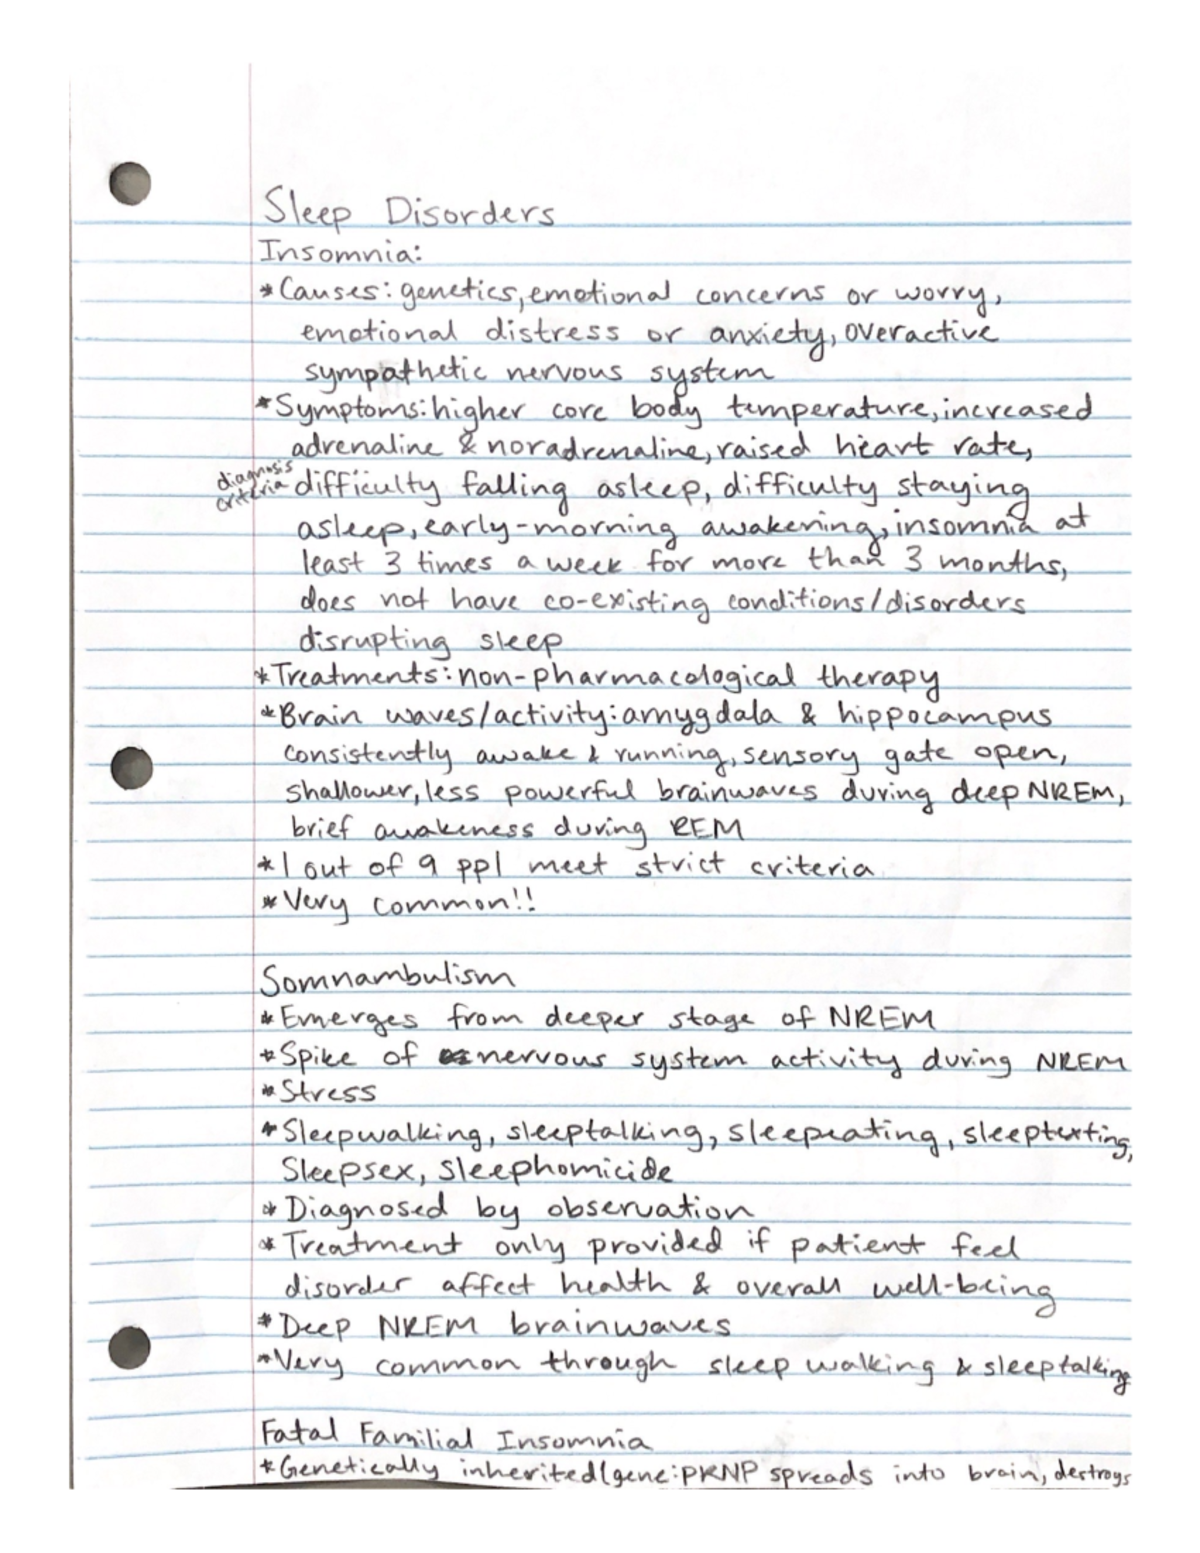 Sleep Disorders
Insomnia:
*Causes: genetics, emotional concerns or worry,
emotional distress or anxiety, overactive
sympathetic nervous system
*Symptoms: higher core body temperature, increased
adrenaline & noradrenaline, raised heart rate,
diagnosis
criteria
difficulty falling asleep, difficulty staying
asleep, early-morning awakening, insomnia at
least 3 times a week for more than 3 months,
does not have co-existing conditions/disorders
disrupting sleep
*Treatments: non-pharmacological therapy
*Brain waves/activity: amygdala & hippocampus
consistently awake & running, sensory gate open,
shallower, less powerful brainwaves during deep NREM,
brief awakeness during REM
*1 out of 9 ppl meet strict criteria
*Very common!!
Somnambulism
*Emerges from deeper stage of NREM
*Spike of nervous system activity during NREM
*Stress
*Sleepwalking, sleeptalking, sleepeating, sleeptexting,
Sleepsex, sleephomicide
*Diagnosed by observation
*Treatment only provided if patient feel
disorder affect health & overall well-being
*Deep NREM brainwaves
*Very common through sleep walking & sleeptalking
Fatal Familial Insomnia
*Genetically inherited (gene: PRNP spreads into brain, destroys